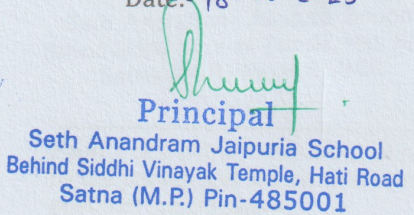 Date:
Principal
Seth Anandram Jaipuria School
Behind Siddhi Vinayak Temple, Hati Road
Satna (M.P.) Pin-485001